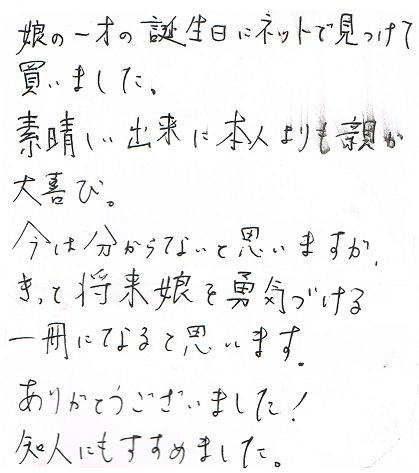 娘の一才の誕生日にネットで見つけて
買いました。
素晴しい出来に本人よりも親が
大喜び。
今は分からないと思いますが、
きっと将来娘を勇気づける
一冊になると思います。
ありがとうございました！
知人にもすすめました。